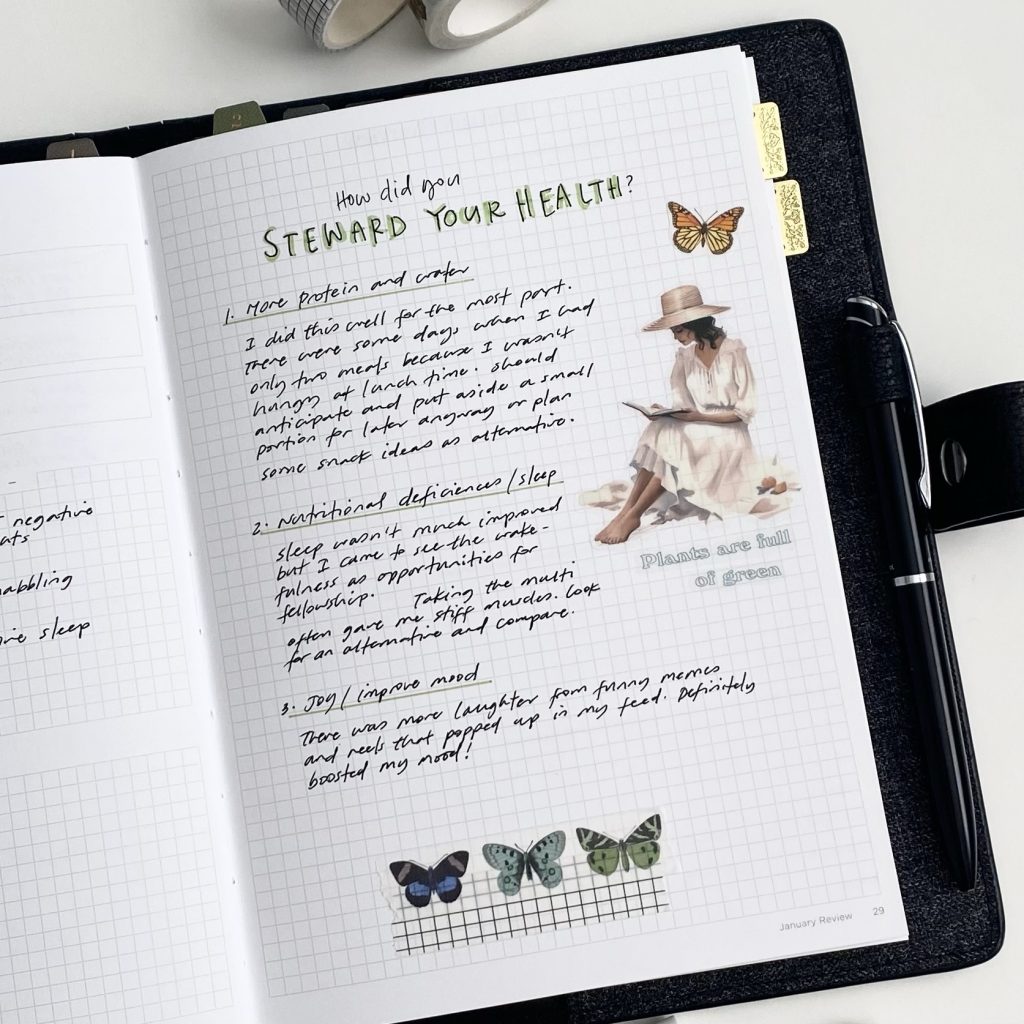 negative
sleep
How did you
STEWARD YOUR HEALTH?
1. More protein and water
I did this well for the most part.
There were some days when I had
only two meals because I wasn't
hungry at lunch time. Should
anticipate and put aside a small
portion for later anyway or plan
some snack ideas as alternative.
2. Nutritional deficiences / sleep
sleep wasn't much improved
but I came to see the wake-
fulness as opportunities for
fellowship.
Taking the multi
often gave me stiff muscles. Look
for an alternative and compare.
3. Joy / improve mood
There was more laughter from funny memes
and reels that popped up in my feed. Definitely
boosted my mood!
Plants are full
of green
January Review 29